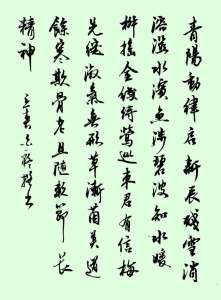 青陽動律启新辰殘雪消
溶溢水濱魚涉碧波知水暖
搖金縷鶯巡東君有信梅
先綻淑氣無形草漸茵莫道
餘寒欺骨老且隨節長
精神
立春
书